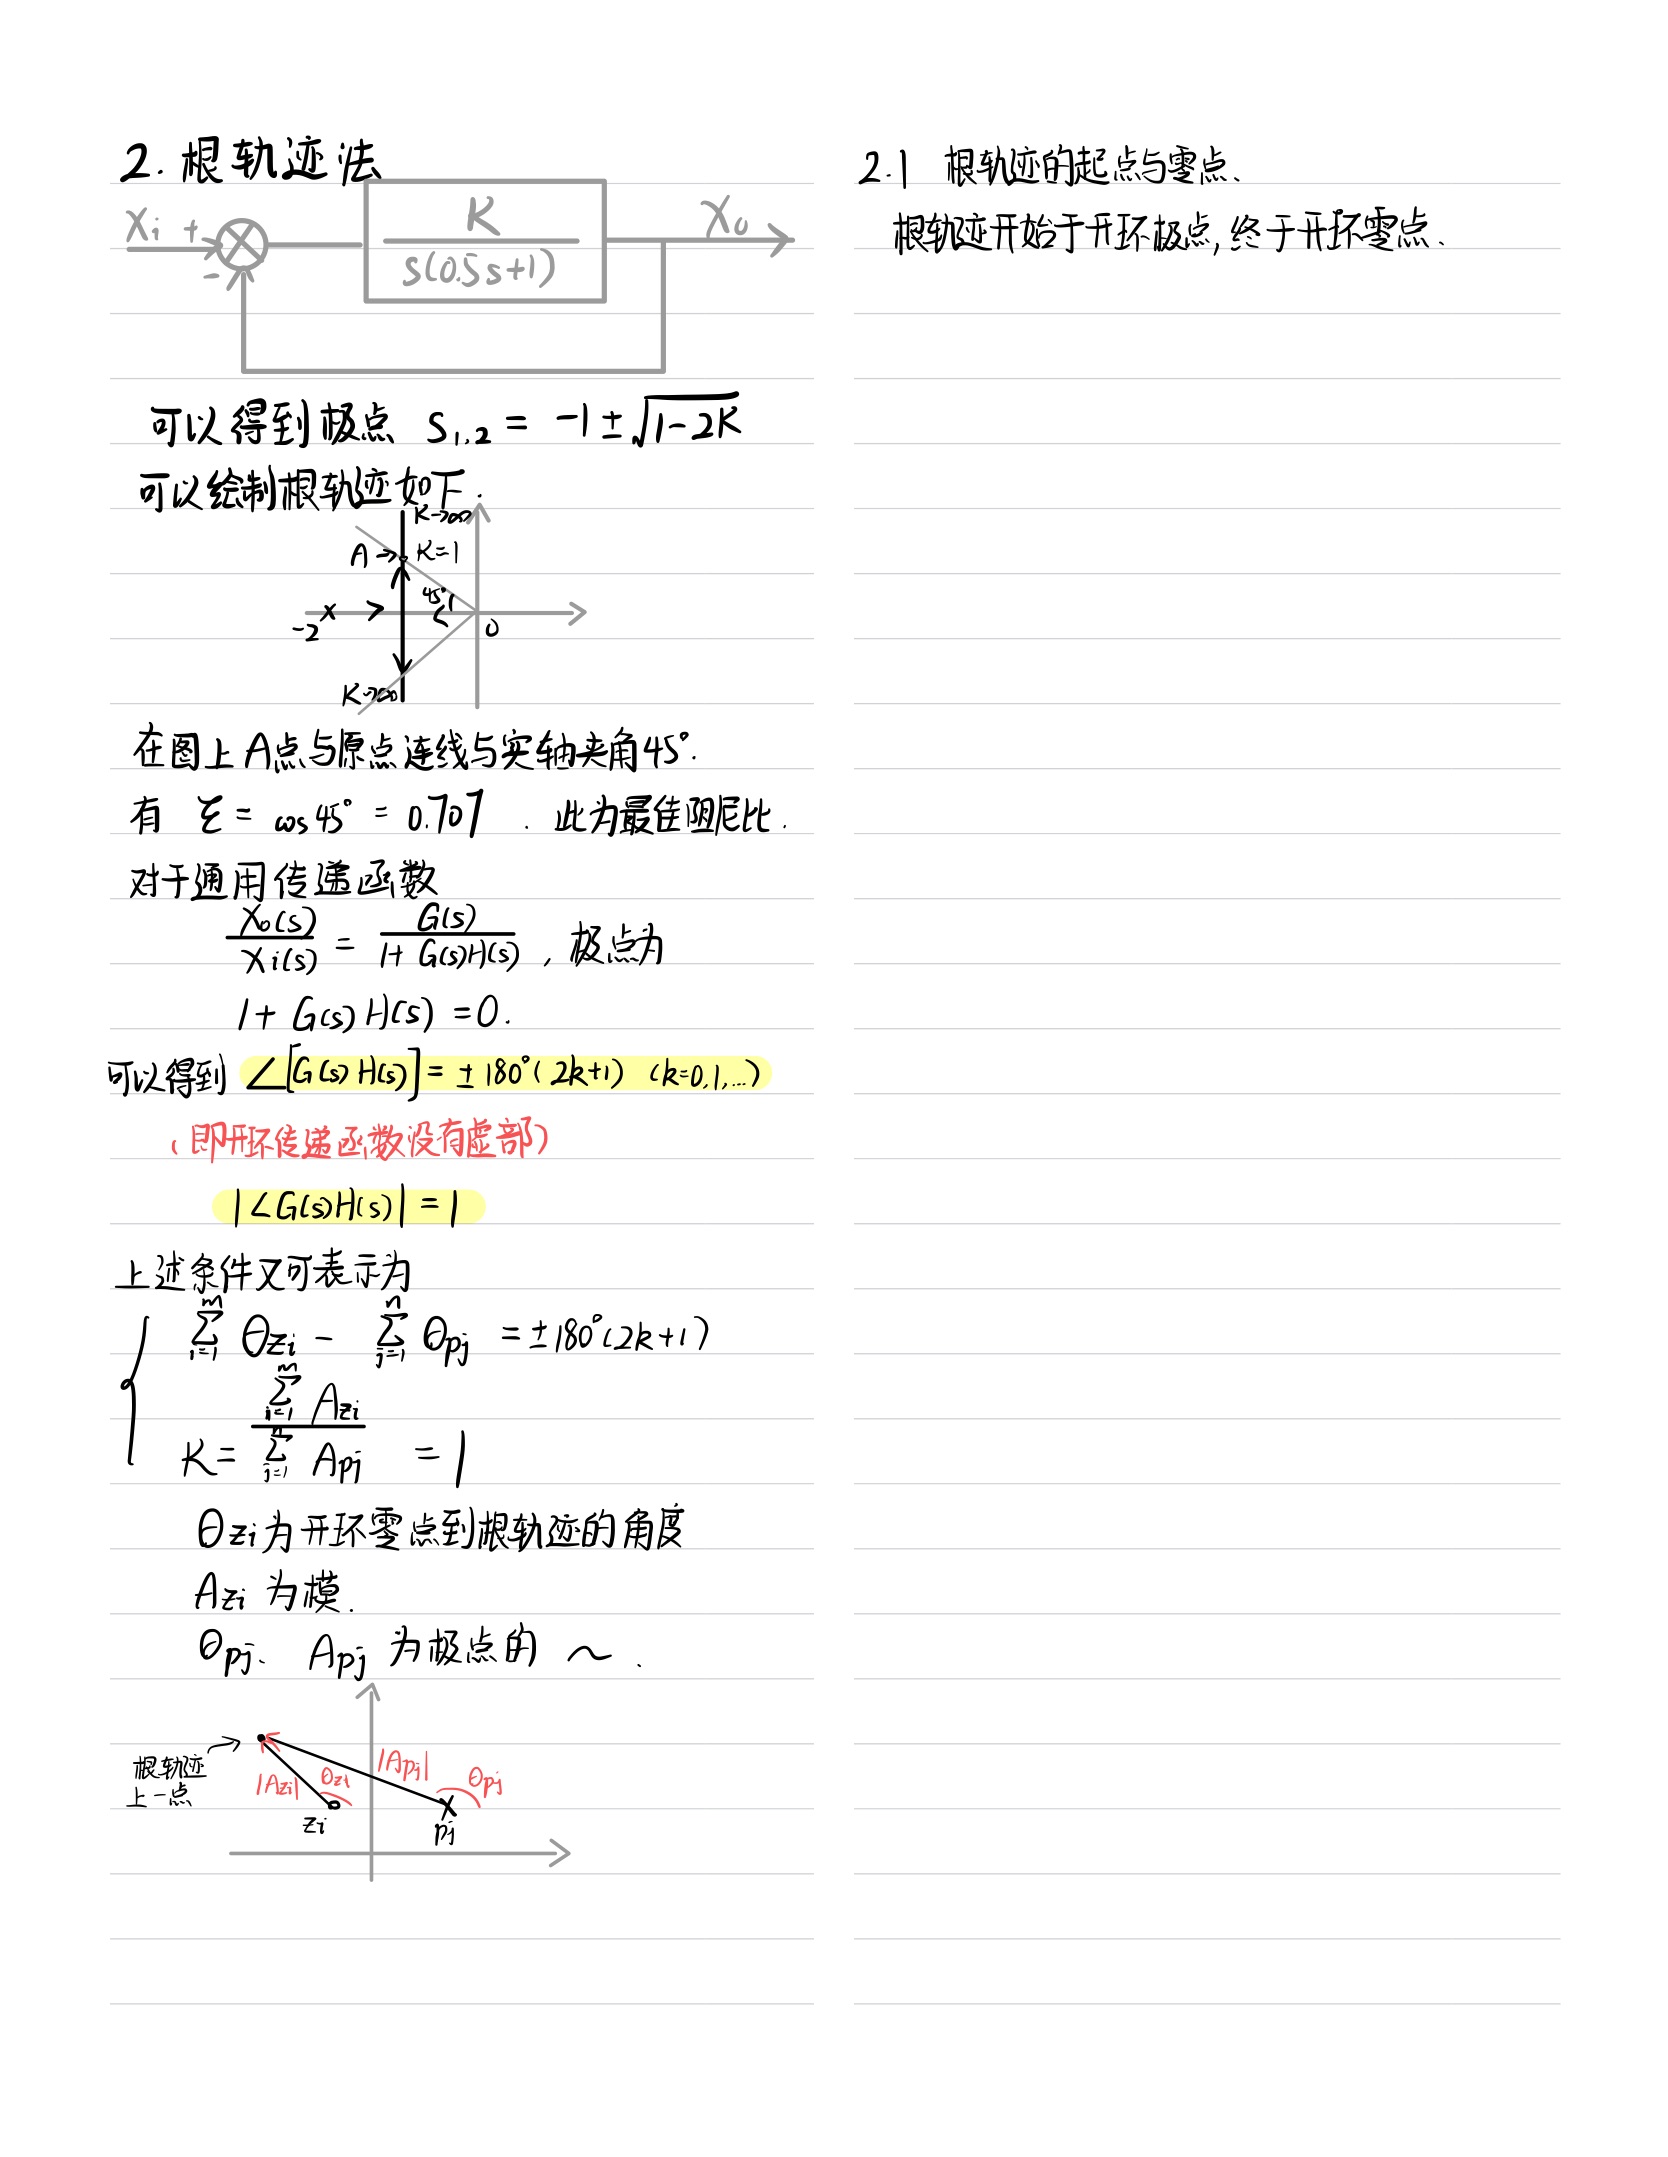 2. 根轨迹法
Xi + - K / s(0.5s+1) Xo
可以得到极点 S1,2 = -1 ± √(1-2K)
可以绘制根轨迹如下.
K→∞
A → K=1
45°
-2 0
K→∞
在图上A点与原点连线与实轴夹角45°.
有 ξ = cos45° = 0.707 . 此为最佳阻尼比.
对于通用传递函数
Xo(s)/Xi(s) = G(s)/(1+G(s)H(s)) , 极点为
1+ G(s)H(s) =0.
可以得到 ∠[G(s)H(s)] = ±180°(2k+1) (k=0,1,…)
(即开环传递函数没有虚部)
|∠G(s)H(s)| = 1
上述条件又可表示为
∑_{i=1}^{m} θzi - ∑_{j=1}^{n} θpj = ±180°(2k+1)
K = ∑_{i=1}^{m} Azi / ∑_{j=1}^{n} Apj = 1
θzi为开环零点到根轨迹的角度
Azi 为模.
θpj、 Apj 为极点的 ～ .
根轨迹
上一点
|Azi| θzi |Apj| θpj
zi pj
2.1 根轨迹的起点与零点、
根轨迹开始于开环极点, 终于开环零点.